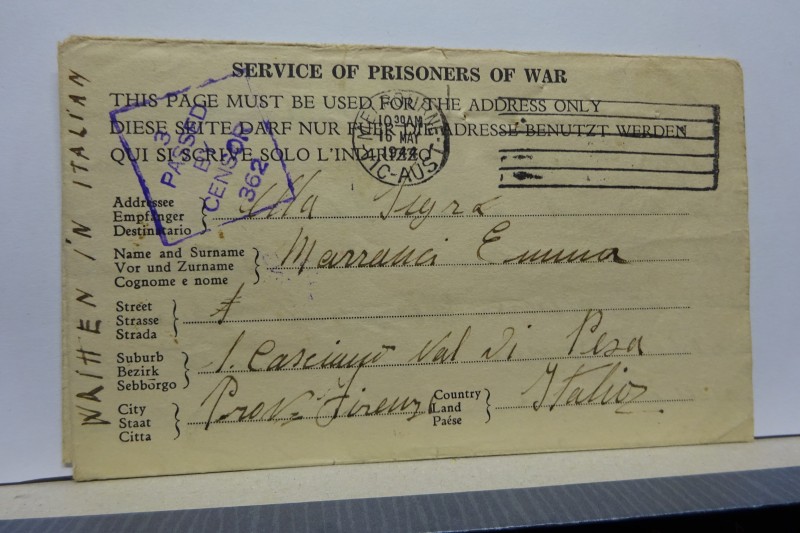 SERVICE OF PRISONERS OF WAR
THIS PAGE MUST BE USED FOR THE ADDRESS ONLY
DIESE SEITE DARF NUR FUER DIE ADRESSE BENUTZT WERDEN
QUI SI SCRIVE SOLO L'INDIRIZZO
3
PASSED
BY
CENSOR
362
MELBOURNE
10 30AM
16 MAY
1944
VIC-AUST
WRITTEN IN ITALIAN
Addressee
Empfänger
Destinatario
Alla Sigra
Name and Surname
Vor und Zurname
Cognome e nome
Marranci Emma
Street
Strasse
Strada
Suburb
Bezirk
Sebborgo
S. Casciano Val Di Pesa
City
Staat
Citta
Prov. Firenze
Country
Land
Paése
Italia